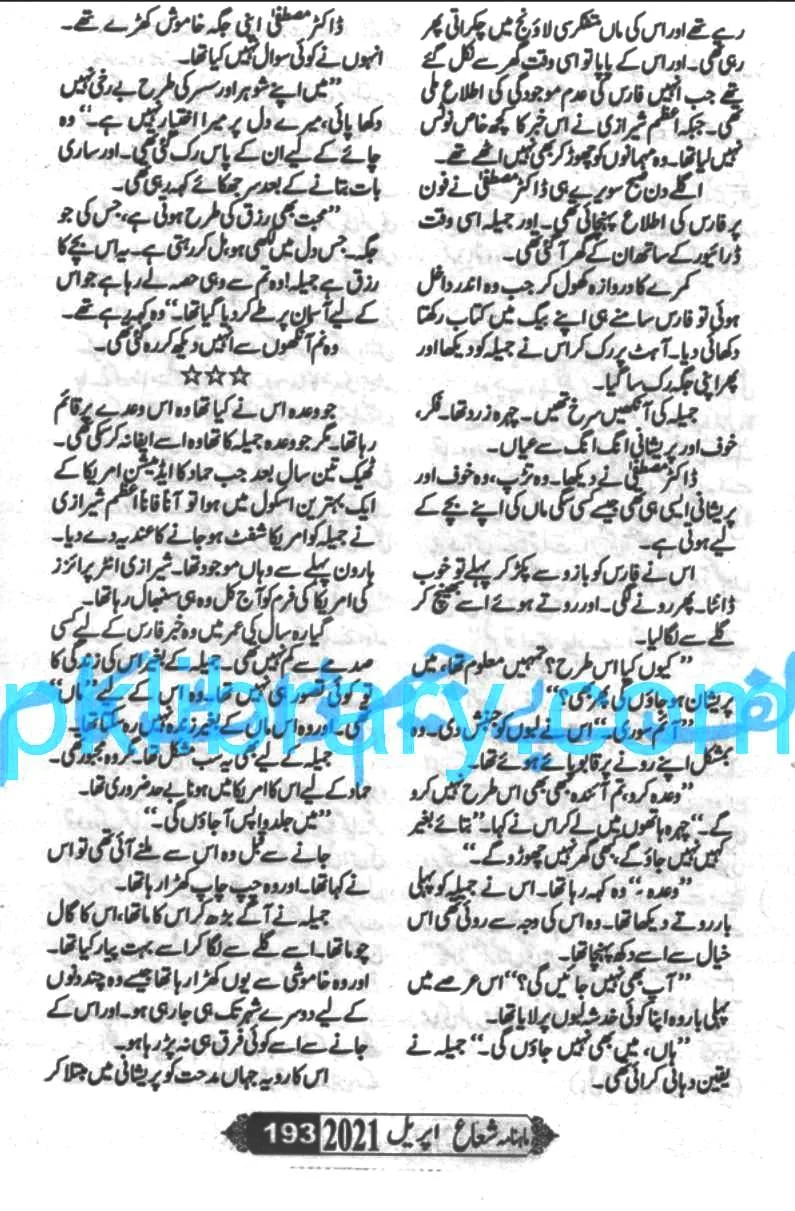 رہے تھے اور اس کی ماں متفکر سی لاؤنج میں چکراتی پھر
رہی تھی۔ اور اس کے پاپا تو اسی وقت گھر سے نکل گئے
تھے جب انہیں فارس کی عدم موجودگی کی اطلاع ملی
تھی۔ جبکہ اعظم شیرازی نے اس خبر کا کچھ خاص نوٹس
نہیں لیا تھا۔ وہ مہمانوں کو چھوڑ کر بھی نہیں اٹھے تھے۔
اگلے دن صبح سویرے ہی ڈاکٹر مصطفیٰ نے فون
پر فارس کی اطلاع پہنچائی تھی۔ اور جمیلہ اسی وقت
ڈرائیور کے ساتھ ان کے گھر آ گئی تھی۔
کمرے کا دروازہ کھول کر جب وہ اندر داخل
ہوئی تو فارس سامنے ہی اپنے بیگ میں کتاب رکھتا
دکھائی دیا۔ آہٹ پر رک کر اس نے جمیلہ کو دیکھا اور
پھر اپنی جگہ رک سا گیا۔
جمیلہ کی آنکھیں سرخ تھیں۔ چہرہ زرد تھا۔ فکر،
خوف اور پریشانی انگ انگ سے عیاں۔
ڈاکٹر مصطفیٰ نے دیکھا۔ وہ تڑپ، وہ خوف اور
پریشانی ایسی ہی تھی جیسے کسی سگی ماں کی اپنے بچے کے
لیے ہوتی ہے۔
اس نے فارس کو بازو سے پکڑ کر پہلے تو خوب
ڈانٹا۔ پھر رونے لگی۔ اور روتے ہوئے اسے بھینچ کر
گلے سے لگا لیا۔
"کیوں کیا اس طرح؟ تمہیں معلوم تھا، میں
پریشان ہو جاؤں گی پھر بھی؟"
"آئم سوری۔" اس نے لبوں کو جنبش دی۔ وہ
بمشکل اپنے رونے پر قابو پائے ہوئے تھا۔
"وعدہ کرو، تم آئندہ کبھی بھی اس طرح نہیں کرو
گے۔" چہرہ ہاتھوں میں لے کر اس نے کہا۔ "بتائے بغیر
کہیں نہیں جاؤ گے، کبھی گھر نہیں چھوڑو گے۔"
"وعدہ۔" وہ کہہ رہا تھا۔ اس نے جمیلہ کو پہلی
بار روتے دیکھا تھا۔ وہ اس کی وجہ سے روئی تھی اس
خیال سے اسے دکھ پہنچا تھا۔
"آپ بھی نہیں جائیں گی؟" اس عرصے میں
پہلی بار وہ اپنا کوئی خدشہ لبوں پر لایا تھا۔
"ہاں، میں بھی نہیں جاؤں گی۔" جمیلہ نے
یقین دہانی کرائی تھی۔
ڈاکٹر مصطفیٰ اپنی جگہ خاموش کھڑے تھے۔
انہوں نے کوئی سوال نہیں کیا تھا۔
"میں اپنے شوہر اور سسر کی طرح بے رخی نہیں
دکھا پائی، میرے دل پر میرا اختیار نہیں ہے۔" وہ
جانے کے لیے ان کے پاس رک گئی تھی۔ اور ساری
بات بتانے کے بعد سر جھکائے کہہ رہی تھی۔
"محبت بھی رزق کی طرح ہوتی ہے، جس کی جو
جگہ۔ جس دل میں لکھی ہو مل کر رہتی ہے۔ یہ اس بچے کا
رزق ہے جمیلہ! وہ تم سے وہی حصہ لے رہا ہے جو اس
کے لیے آسمان پر طے کر دیا گیا تھا۔" وہ کہہ رہے تھے۔
وہ نم آنکھوں سے انہیں دیکھ کر رہ گئی تھی۔
☆☆☆
جو وعدہ اس نے کیا تھا وہ اس وعدے پر قائم
رہا تھا۔ مگر جو وعدہ جمیلہ کا تھا وہ اسے ایفا نہ کر سکی تھی۔
ٹھیک تین سال بعد جب حماد کا ایڈمیشن امریکا کے
ایک بہترین اسکول میں ہوا تو آناً فاناً اعظم شیرازی
نے جمیلہ کو امریکا شفٹ ہو جانے کا عندیہ دے دیا۔
ہارون پہلے سے وہاں موجود تھا۔ شیرازی انٹرپرائزز
کی امریکا کی فرم کو آج کل وہ ہی سنبھال رہا تھا۔
گیارہ سال کی عمر میں وہ خبر فارس کے لیے کسی
صدمے سے کم نہیں تھی۔ جمیلہ کے بغیر اس کی زندگی کا
تو کوئی تصور ہی نہیں تھا۔ وہ اس کے لیے "ماں"
تھی۔ اور وہ اس ماں کے بغیر زندہ نہیں رہ سکتا تھا۔
جمیلہ کے لیے بھی یہ سب مشکل تھا۔ مگر وہ مجبور تھی۔
حماد کے لیے اس کا امریکا میں ہونا بے حد ضروری تھا۔
"میں جلد واپس آ جاؤں گی۔"
جانے سے قبل وہ اس سے ملنے آئی تھی تو اس
نے کہا تھا۔ اور وہ چپ چاپ کھڑا رہا تھا۔
جمیلہ نے آگے بڑھ کر اس کا ماتھا، اس کا گال
چوما تھا۔ اسے گلے سے لگا کر اسے بہت پیار کیا تھا۔
اور وہ خاموشی سے یوں کھڑا رہا تھا جیسے وہ چند دنوں
کے لیے دوسرے شہر تک ہی جا رہی ہو۔ اور اس کے
جانے سے اسے کوئی فرق ہی نہ پڑ رہا ہو۔
اس کا رویہ جہاں مدحت کو پریشانی میں مبتلا کر
pklibrary.com
ماہنامہ شعاع اپریل 2021 193